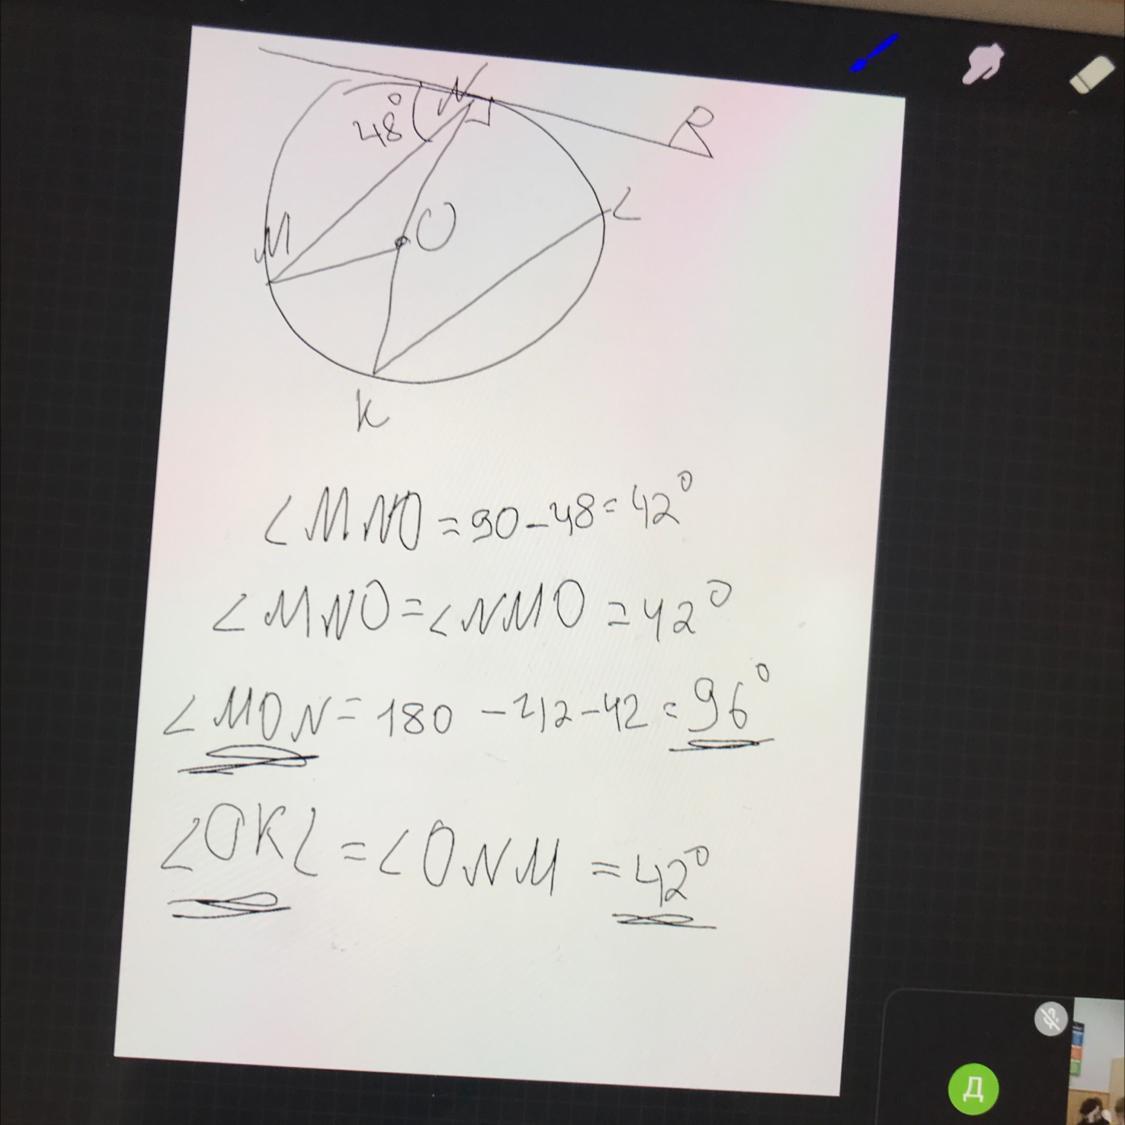 N
48°
B
L
M
O
K
∠MNO = 90 - 48 = 42°
∠MNO = ∠NMO = 42°
∠MON = 180 - 42 - 42 = 96°
∠OKL = ∠ONM = 42°
Д